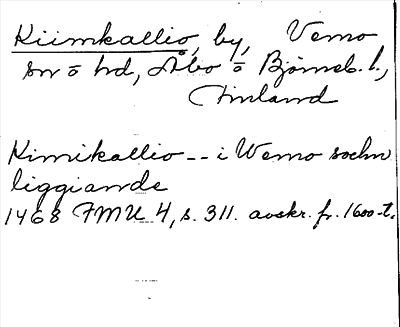 Kiimkallio, by, Vemo
sn o hd, Åbo o Björneb. l.,
Finland
Kimikallio -- i Wemo sochn
liggiande
1468 FMU 4, s. 311. avskr. fr. 1600-t.